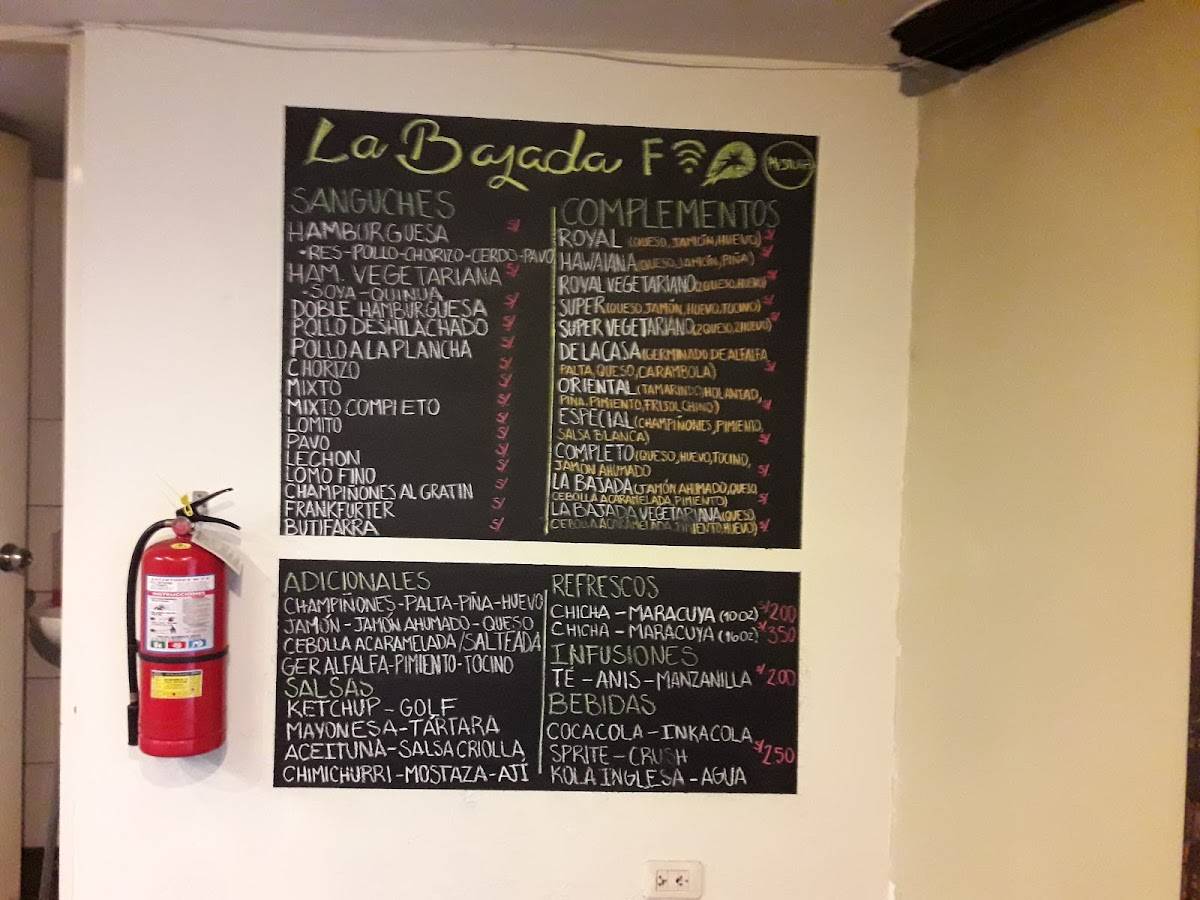 La Bajada F
SANGUCHES
HAMBURGUESA S/
•RES-POLLO-CHORIZO-CERDO-PAVO
HAM. VEGETARIANA S/
-SOYA-QUINUA
DOBLE HAMBURGUESA S/
POLLO DESHILACHADO S/
POLLO A LA PLANCHA S/
CHORIZO S/
MIXTO S/
MIXTO COMPLETO S/
LOMITO S/
PAVO S/
LECHON S/
LOMO FINO S/
CHAMPIÑONES AL GRATIN S/
FRANKFURTER S/
BUTIFARRA S/
COMPLEMENTOS
ROYAL (QUESO, JAMÓN, HUEVO) S/
HAWAIANA (QUESO, JAMÓN, PIÑA) S/
ROYAL VEGETARIANO (2QUESO, HUEVO) S/
SUPER (QUESO, JAMÓN, HUEVO, TOCINO) S/
SUPER VEGETARIANO (2QUESO, 2HUEVO) S/
DE LA CASA (GERMINADO DE ALFALFA,
PALTA, QUESO, CARAMBOLA) S/
ORIENTAL (TAMARINDO, HOLANTAO,
PIÑA, PIMIENTO, FRIJOL CHINO) S/
ESPECIAL (CHAMPIÑONES, PIMIENTO,
SALSA BLANCA) S/
COMPLETO (QUESO, HUEVO, TOCINO,
JAMÓN AHUMADO S/
LA BAJADA (JAMÓN AHUMADO, QUESO,
CEBOLLA ACARAMELADA, PIMIENTO) S/
LA BAJADA VEGETARIANA (QUESO,
CEBOLLA ACARAMELADA, PIMIENTO, HUEVO) S/
ADICIONALES
CHAMPIÑONES-PALTA-PIÑA-HUEVO
JAMÓN-JAMÓN AHUMADO-QUESO
CEBOLLA ACARAMELADA/SALTEADA
GER ALFALFA-PIMIENTO-TOCINO
SALSAS
KETCHUP-GOLF
MAYONESA-TÁRTARA
ACEITUNA-SALSA CRIOLLA
CHIMICHURRI-MOSTAZA-AJÍ
REFRESCOS
CHICHA-MARACUYA (10 OZ) S/200
CHICHA-MARACUYA (16 OZ) S/350
INFUSIONES
TÉ-ANIS-MANZANILLA S/200
BEBIDAS
COCACOLA-INKACOLA
SPRITE-CRUSH S/250
KOLA INGLESA-AGUA